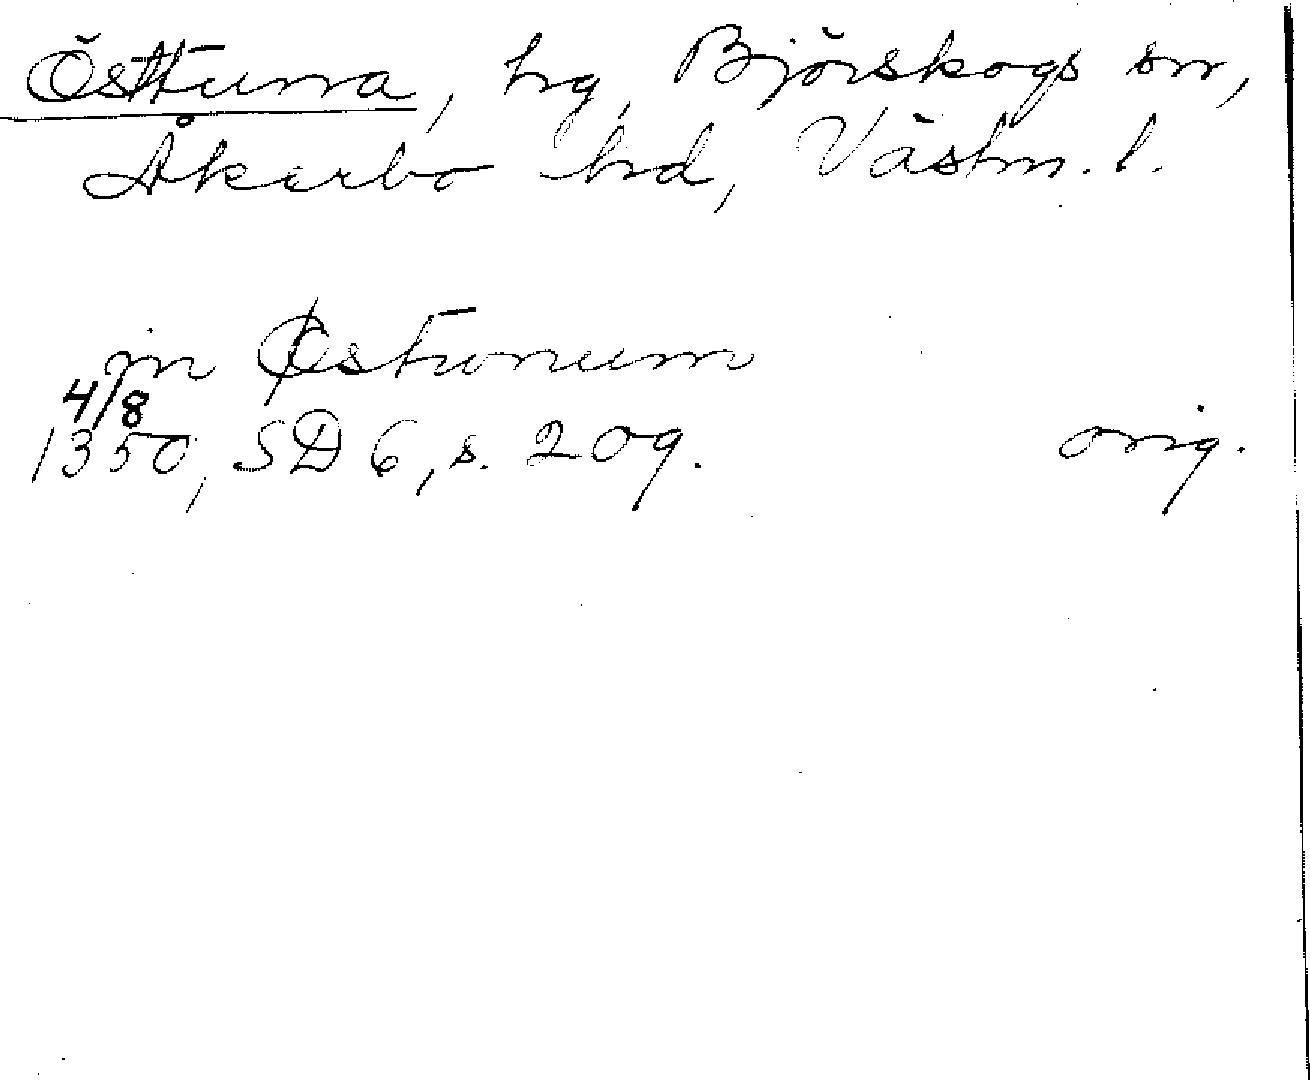 Östtuna, hg, Björskogs sn,
Åkerbo hd, Västm. l.
in Østwnum
4/8
1350, SD 6, s. 209. orig.